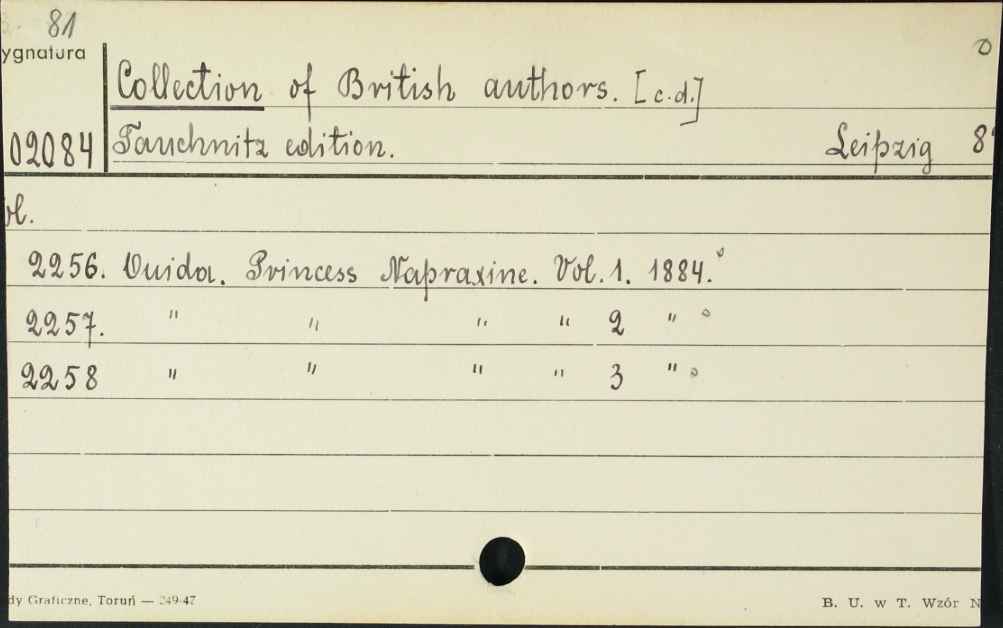 81
ygnatura
Collection of British authors. [c.d.]
02084 Tauchnitz edition. Leipzig 8°
ol.
2256. Ouida. Princess Napraxine. Vol. 1. 1884.
2257. " " " " 2 "
2258 " " " " 3 "
dy Graficzne, Toruń — 249-47
B. U. w T. Wzór N